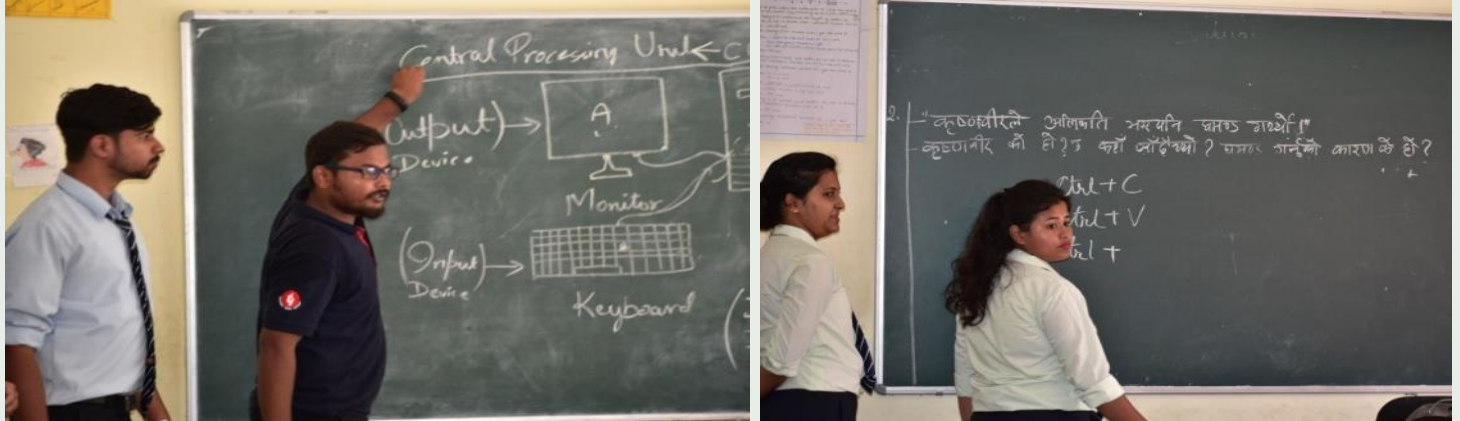 Central Processing Unit ← C
(Output) →
Device
A
Monitor
(Input) →
Device
Keyboard
2.
"कृष्णवीरले अलिकति मस्यति घमण्ड गर्थ्यो।"
कृष्णवीर को हो? ऊ कहाँ जाँदैथ्यो? घमण्ड गर्नुको कारण के हो?
Ctrl + C
Ctrl + V
Ctrl +